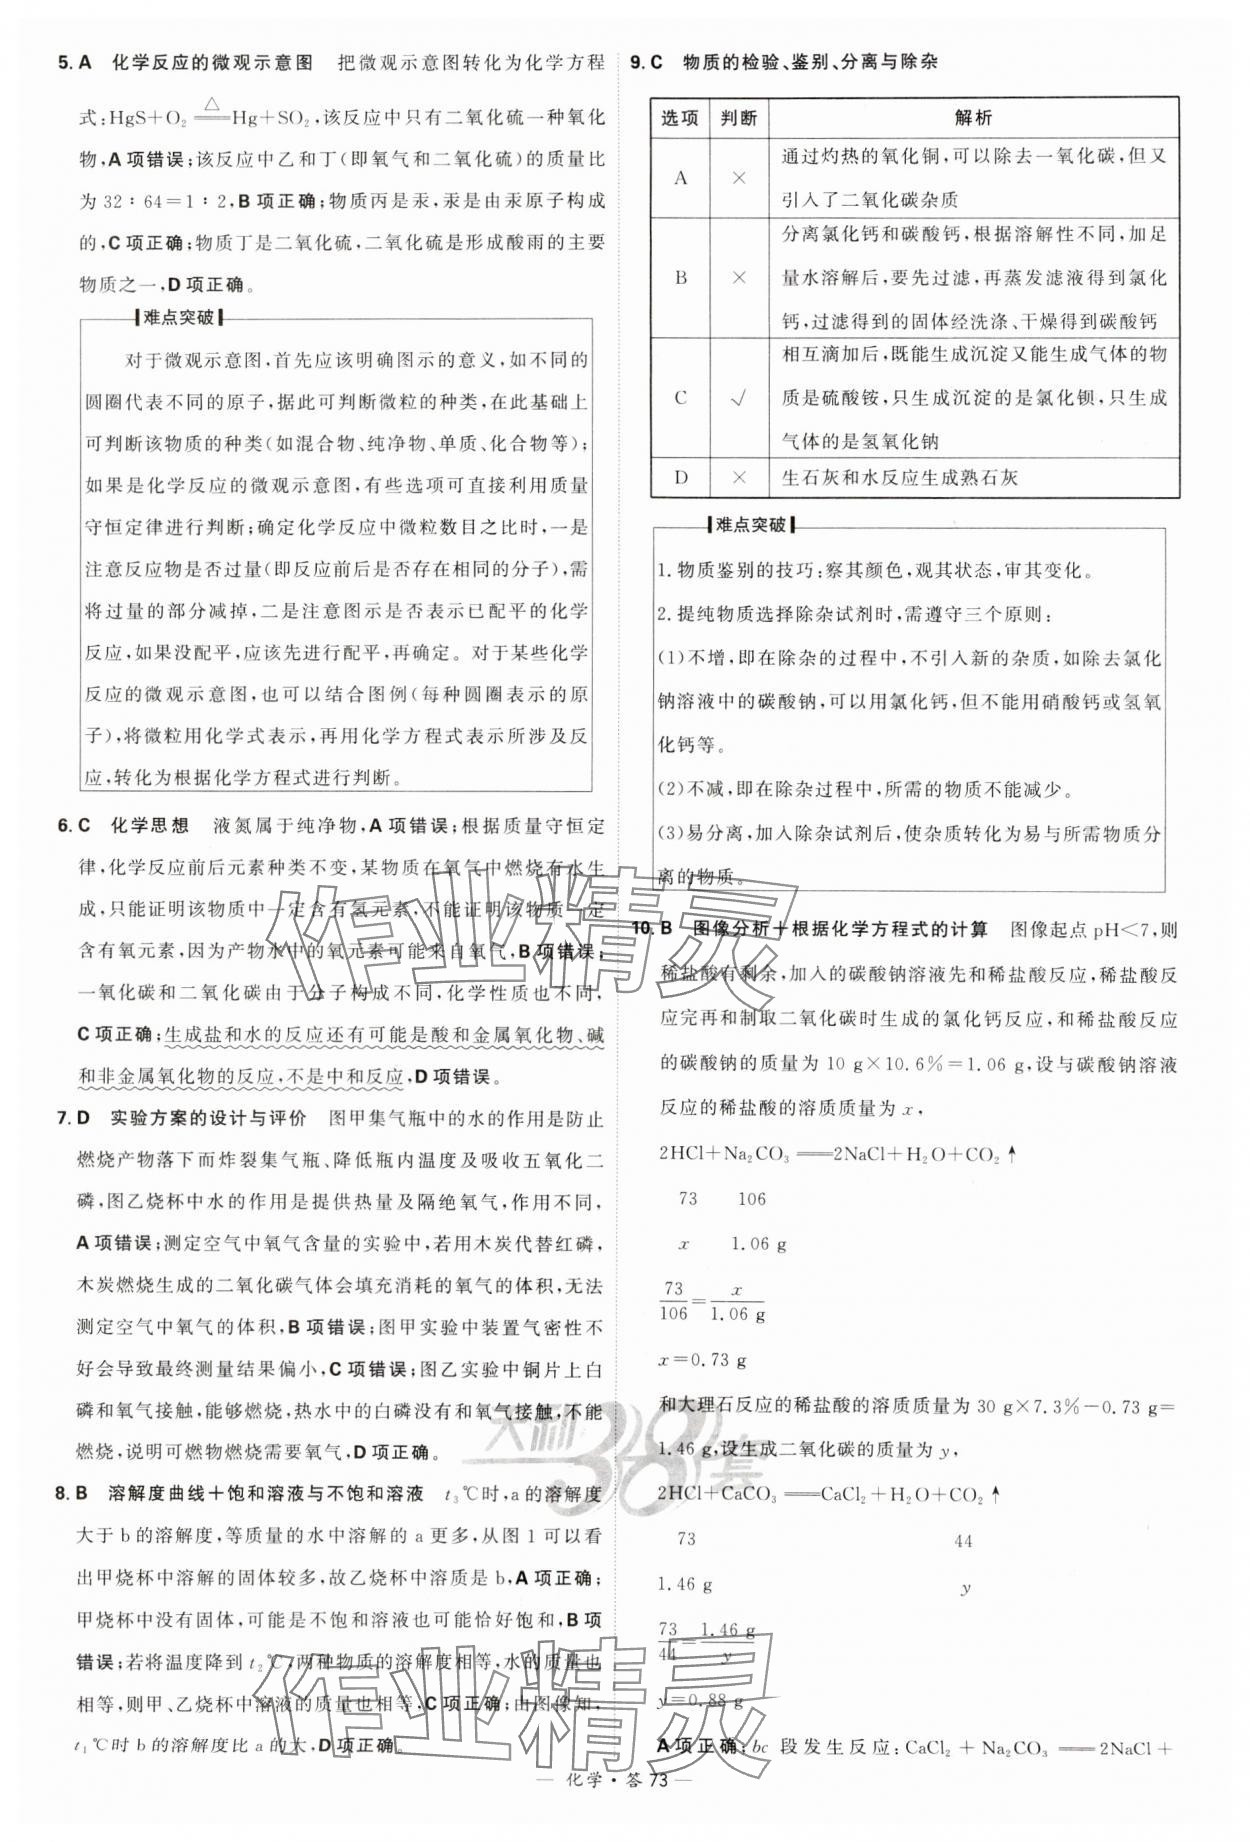 5. A 化学反应的微观示意图 把微观示意图转化为化学方程
式:HgS+O₂ =△= Hg+SO₂,该反应中只有二氧化硫一种氧化
物,A项错误;该反应中乙和丁(即氧气和二氧化硫)的质量比
为32∶64=1∶2,B项正确;物质丙是汞,汞是由汞原子构成
的,C项正确;物质丁是二氧化硫,二氧化硫是形成酸雨的主要
物质之一,D项正确。
难点突破
对于微观示意图,首先应该明确图示的意义,如不同的
圆圈代表不同的原子,据此可判断微粒的种类,在此基础上
可判断该物质的种类(如混合物、纯净物、单质、化合物等);
如果是化学反应的微观示意图,有些选项可直接利用质量
守恒定律进行判断;确定化学反应中微粒数目之比时,一是
注意反应物是否过量(即反应前后是否存在相同的分子),需
将过量的部分减掉,二是注意图示是否表示已配平的化学
反应,如果没配平,应该先进行配平,再确定。对于某些化学
反应的微观示意图,也可以结合图例(每种圆圈表示的原
子),将微粒用化学式表示,再用化学方程式表示所涉及反
应,转化为根据化学方程式进行判断。
6. C 化学思想 液氮属于纯净物,A项错误;根据质量守恒定
律,化学反应前后元素种类不变,某物质在氧气中燃烧有水生
成,只能证明该物质中一定含有氢元素,不能证明该物质一定
含有氧元素,因为产物水中的氧元素可能来自氧气,B项错误;
一氧化碳和二氧化碳由于分子构成不同,化学性质也不同,
C项正确;生成盐和水的反应还有可能是酸和金属氧化物、碱
和非金属氧化物的反应,不是中和反应,D项错误。
7. D 实验方案的设计与评价 图甲集气瓶中的水的作用是防止
燃烧产物落下而炸裂集气瓶、降低瓶内温度及吸收五氧化二
磷,图乙烧杯中水的作用是提供热量及隔绝氧气,作用不同,
A项错误;测定空气中氧气含量的实验中,若用木炭代替红磷,
木炭燃烧生成的二氧化碳气体会填充消耗的氧气的体积,无法
测定空气中氧气的体积,B项错误;图甲实验中装置气密性不
好会导致最终测量结果偏小,C项错误;图乙实验中铜片上白
磷和氧气接触,能够燃烧,热水中的白磷没有和氧气接触,不能
燃烧,说明可燃物燃烧需要氧气,D项正确。
8. B 溶解度曲线+饱和溶液与不饱和溶液 t₃℃时,a的溶解度
大于b的溶解度,等质量的水中溶解的a更多,从图1可以看
出甲烧杯中溶解的固体较多,故乙烧杯中溶质是b,A项正确;
甲烧杯中没有固体,可能是不饱和溶液也可能恰好饱和,B项
错误;若将温度降到t₂℃,两种物质的溶解度相等,水的质量也
相等,则甲、乙烧杯中溶液的质量也相等,C项正确;由图像知,
t₁℃时b的溶解度比a的大,D项正确。
9. C 物质的检验、鉴别、分离与除杂
选项 判断 解析
A × 通过灼热的氧化铜,可以除去一氧化碳,但又
引入了二氧化碳杂质
B × 分离氯化钙和碳酸钙,根据溶解性不同,加足
量水溶解后,要先过滤,再蒸发滤液得到氯化
钙,过滤得到的固体经洗涤、干燥得到碳酸钙
C √ 相互滴加后,既能生成沉淀又能生成气体的物
质是硫酸铵,只生成沉淀的是氯化钡,只生成
气体的是氢氧化钠
D × 生石灰和水反应生成熟石灰
难点突破
1. 物质鉴别的技巧:察其颜色,观其状态,审其变化。
2. 提纯物质选择除杂试剂时,需遵守三个原则:
(1)不增,即在除杂的过程中,不引入新的杂质,如除去氯化
钠溶液中的碳酸钠,可以用氯化钙,但不能用硝酸钙或氢氧
化钙等。
(2)不减,即在除杂过程中,所需的物质不能减少。
(3)易分离,加入除杂试剂后,使杂质转化为易与所需物质分
离的物质。
10. B 图像分析+根据化学方程式的计算 图像起点pH<7,则
稀盐酸有剩余,加入的碳酸钠溶液先和稀盐酸反应,稀盐酸反
应完再和制取二氧化碳时生成的氯化钙反应,和稀盐酸反应
的碳酸钠的质量为10 g×10.6%=1.06 g,设与碳酸钠溶液
反应的稀盐酸的溶质质量为x,
2HCl+Na₂CO₃══2NaCl+H₂O+CO₂↑
73 106
x 1.06 g
73/106=x/1.06 g
x=0.73 g
和大理石反应的稀盐酸的溶质质量为30 g×7.3%-0.73 g=
1.46 g,设生成二氧化碳的质量为y,
2HCl+CaCO₃══CaCl₂+H₂O+CO₂↑
73 44
1.46 g y
73/44=1.46 g/y
y=0.88 g
A项正确;bc段发生反应:CaCl₂+Na₂CO₃══2NaCl+
— 化学·答73 —
作业精灵
天利38套
作业精灵